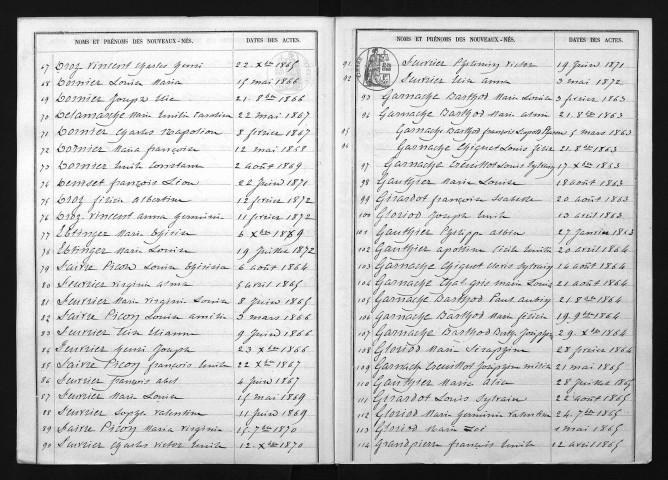 NOMS ET PRÉNOMS DES NOUVEAUX-NÉS. DATES DES ACTES.
67 Droz Vincent Charles Henri 22 Xbre 1865
68 Dornier Louise Maria 15 mai 1866
69 Dornier Joseph Elie 21 8bre 1866
70 Delamarche Marie Emilie Caroline 22 mai 1867
71 Dornier Charles Napoléon 8 février 1867
72 Dornier Marie françoise 12 mai 1868
73 Dornier Emile Constant 2 août 1869
74 Demoset françois Léon 22 Juin 1871
75 Droz félicie albertine 12 février 1872
76 Droz Vincent anna Germinie 11 février 1872
77 Ettinger Marie 6 Xbre 1869
78 Ettinger Marie Louise 19 Juillet 1872
79 Faivre Picon Louise 6 août 1864
80 Feuvrier Virginie 5 avril 1865
81 Feuvrier Marie Virginie Louise 8 Juin 1865
82 Faivre Picon Louise amélie 3 mars 1866
83 Feuvrier Elise Elianne 9 Juin 1866
84 Feuvrier Henri Joseph 23 Xbre 1866
85 Faivre Picon françois Emile 22 Xbre 1867
86 Feuvrier françois abel 4 Juin 1867
87 Feuvrier Marie Louise 15 mai 1869
88 Feuvrier Sophie Valentine 11 Juin 1869
89 Faivre Picon Maria Virginie 15 7bre 1870
90 Feuvrier Charles Victor Emile 12 Xbre 1870
NOMS ET PRÉNOMS DES NOUVEAUX-NÉS. DATES DES ACTES.
91 Feuvrier Victor 19 Juin 1871
92 Feuvrier anna 3 mai 1872
93 Garnache Barthod Marie Louise 3 février 1863
94 Garnache Barthod Marie 21 8bre 1863
95 Garnache Barthod françois Léopold 5 mars 1863
96 Garnache Chiquet Louis félix 21 8bre 1863
97 Garnache Creuillot Louis Sylvain 17 Xbre 1863
98 Gauthier Marie Louise 18 août 1863
99 Girardot françoise Isabelle 20 août 1863
100 Gloriod Joseph Emile 13 avril 1863
101 Gauthier Philippe albin 27 Janvier 1863
102 Gauthier apolline Cécile Emilie 20 avril 1864
103 Garnache Chiquet Sylvain 14 août 1864
104 Garnache Marie Louise 21 août 1864
105 Garnache Barthod Paul 21 8bre 1864
106 Garnache Barthod Marie félicie 19 9bre 1864
107 Garnache Barthod 29 Xbre 1864
108 Gloriod Marie Séraphine 28 février 1865
109 Garnache Creuillot Joséphine 21 mai 1865
110 Gauthier Marie 28 Juillet 1865
111 Girardot Louis Sylvain 22 août 1865
112 Gloriod Marie Germinie Valentine 24 7bre 1865
113 Gloriod Marie Zoé 1 mai 1865
114 Grandpierre françois Emile 12 avril 1865